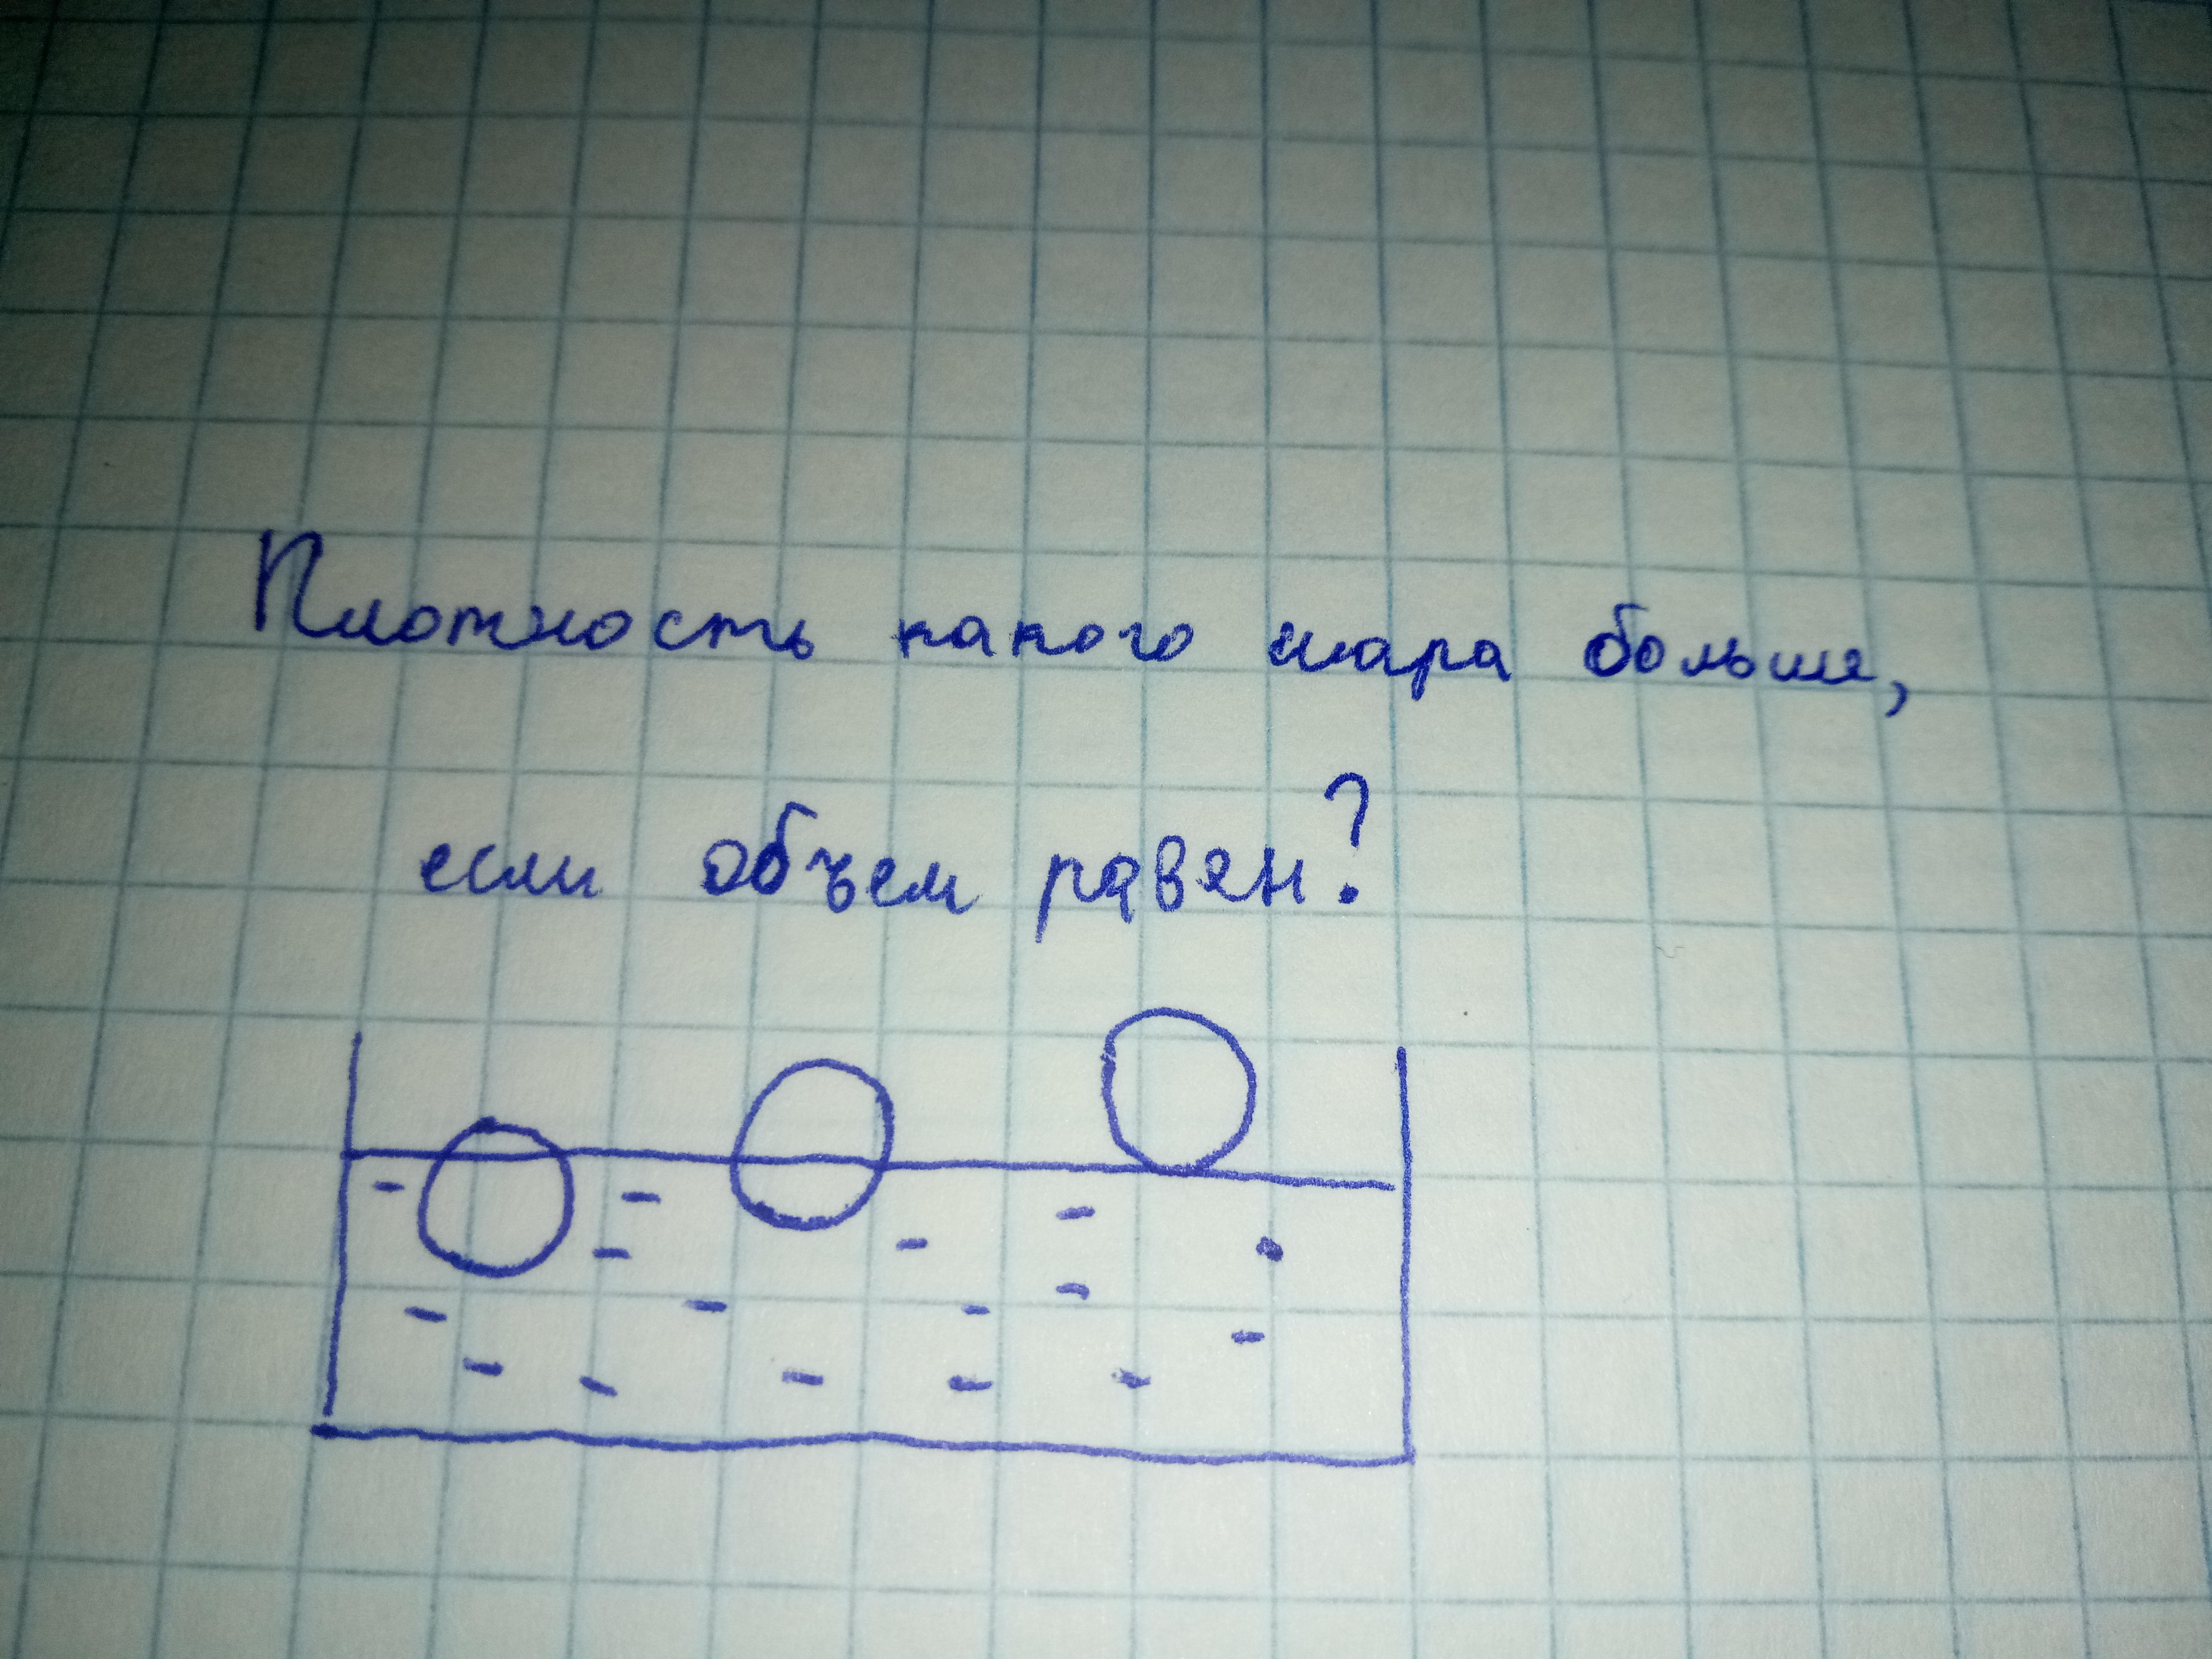 Плотность какого шара больше,
если объем равен?